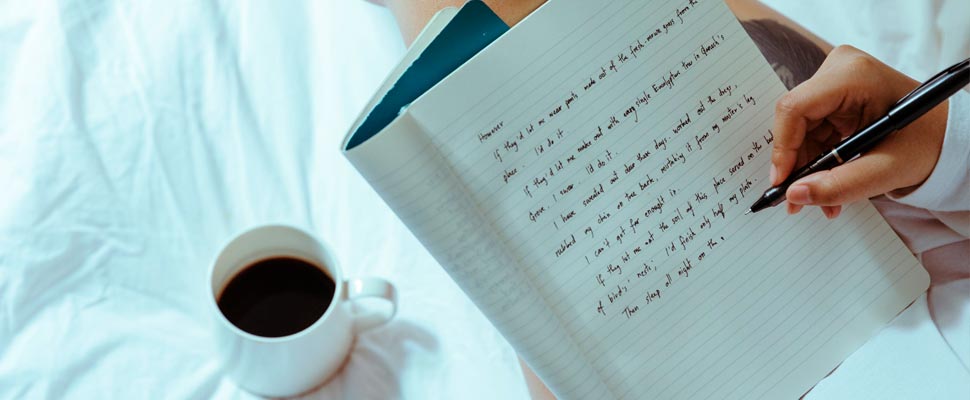 However
If they'd let me wear pants made out of the fresh-mown grass from the
place, I'd do it
If they'd let me make out with every single Eucalyptus tree in Queen's
Grove, I swear, I'd do it.
I have sweated out dear these days, worked out the dregs,
rubbed my chin on the bark, mistaking it for my master's leg
I can't get far enough it.
If they let me eat the soil of this place served on the bed
of birds' nests, I'd finish only half my plate
Then sleep all night on the